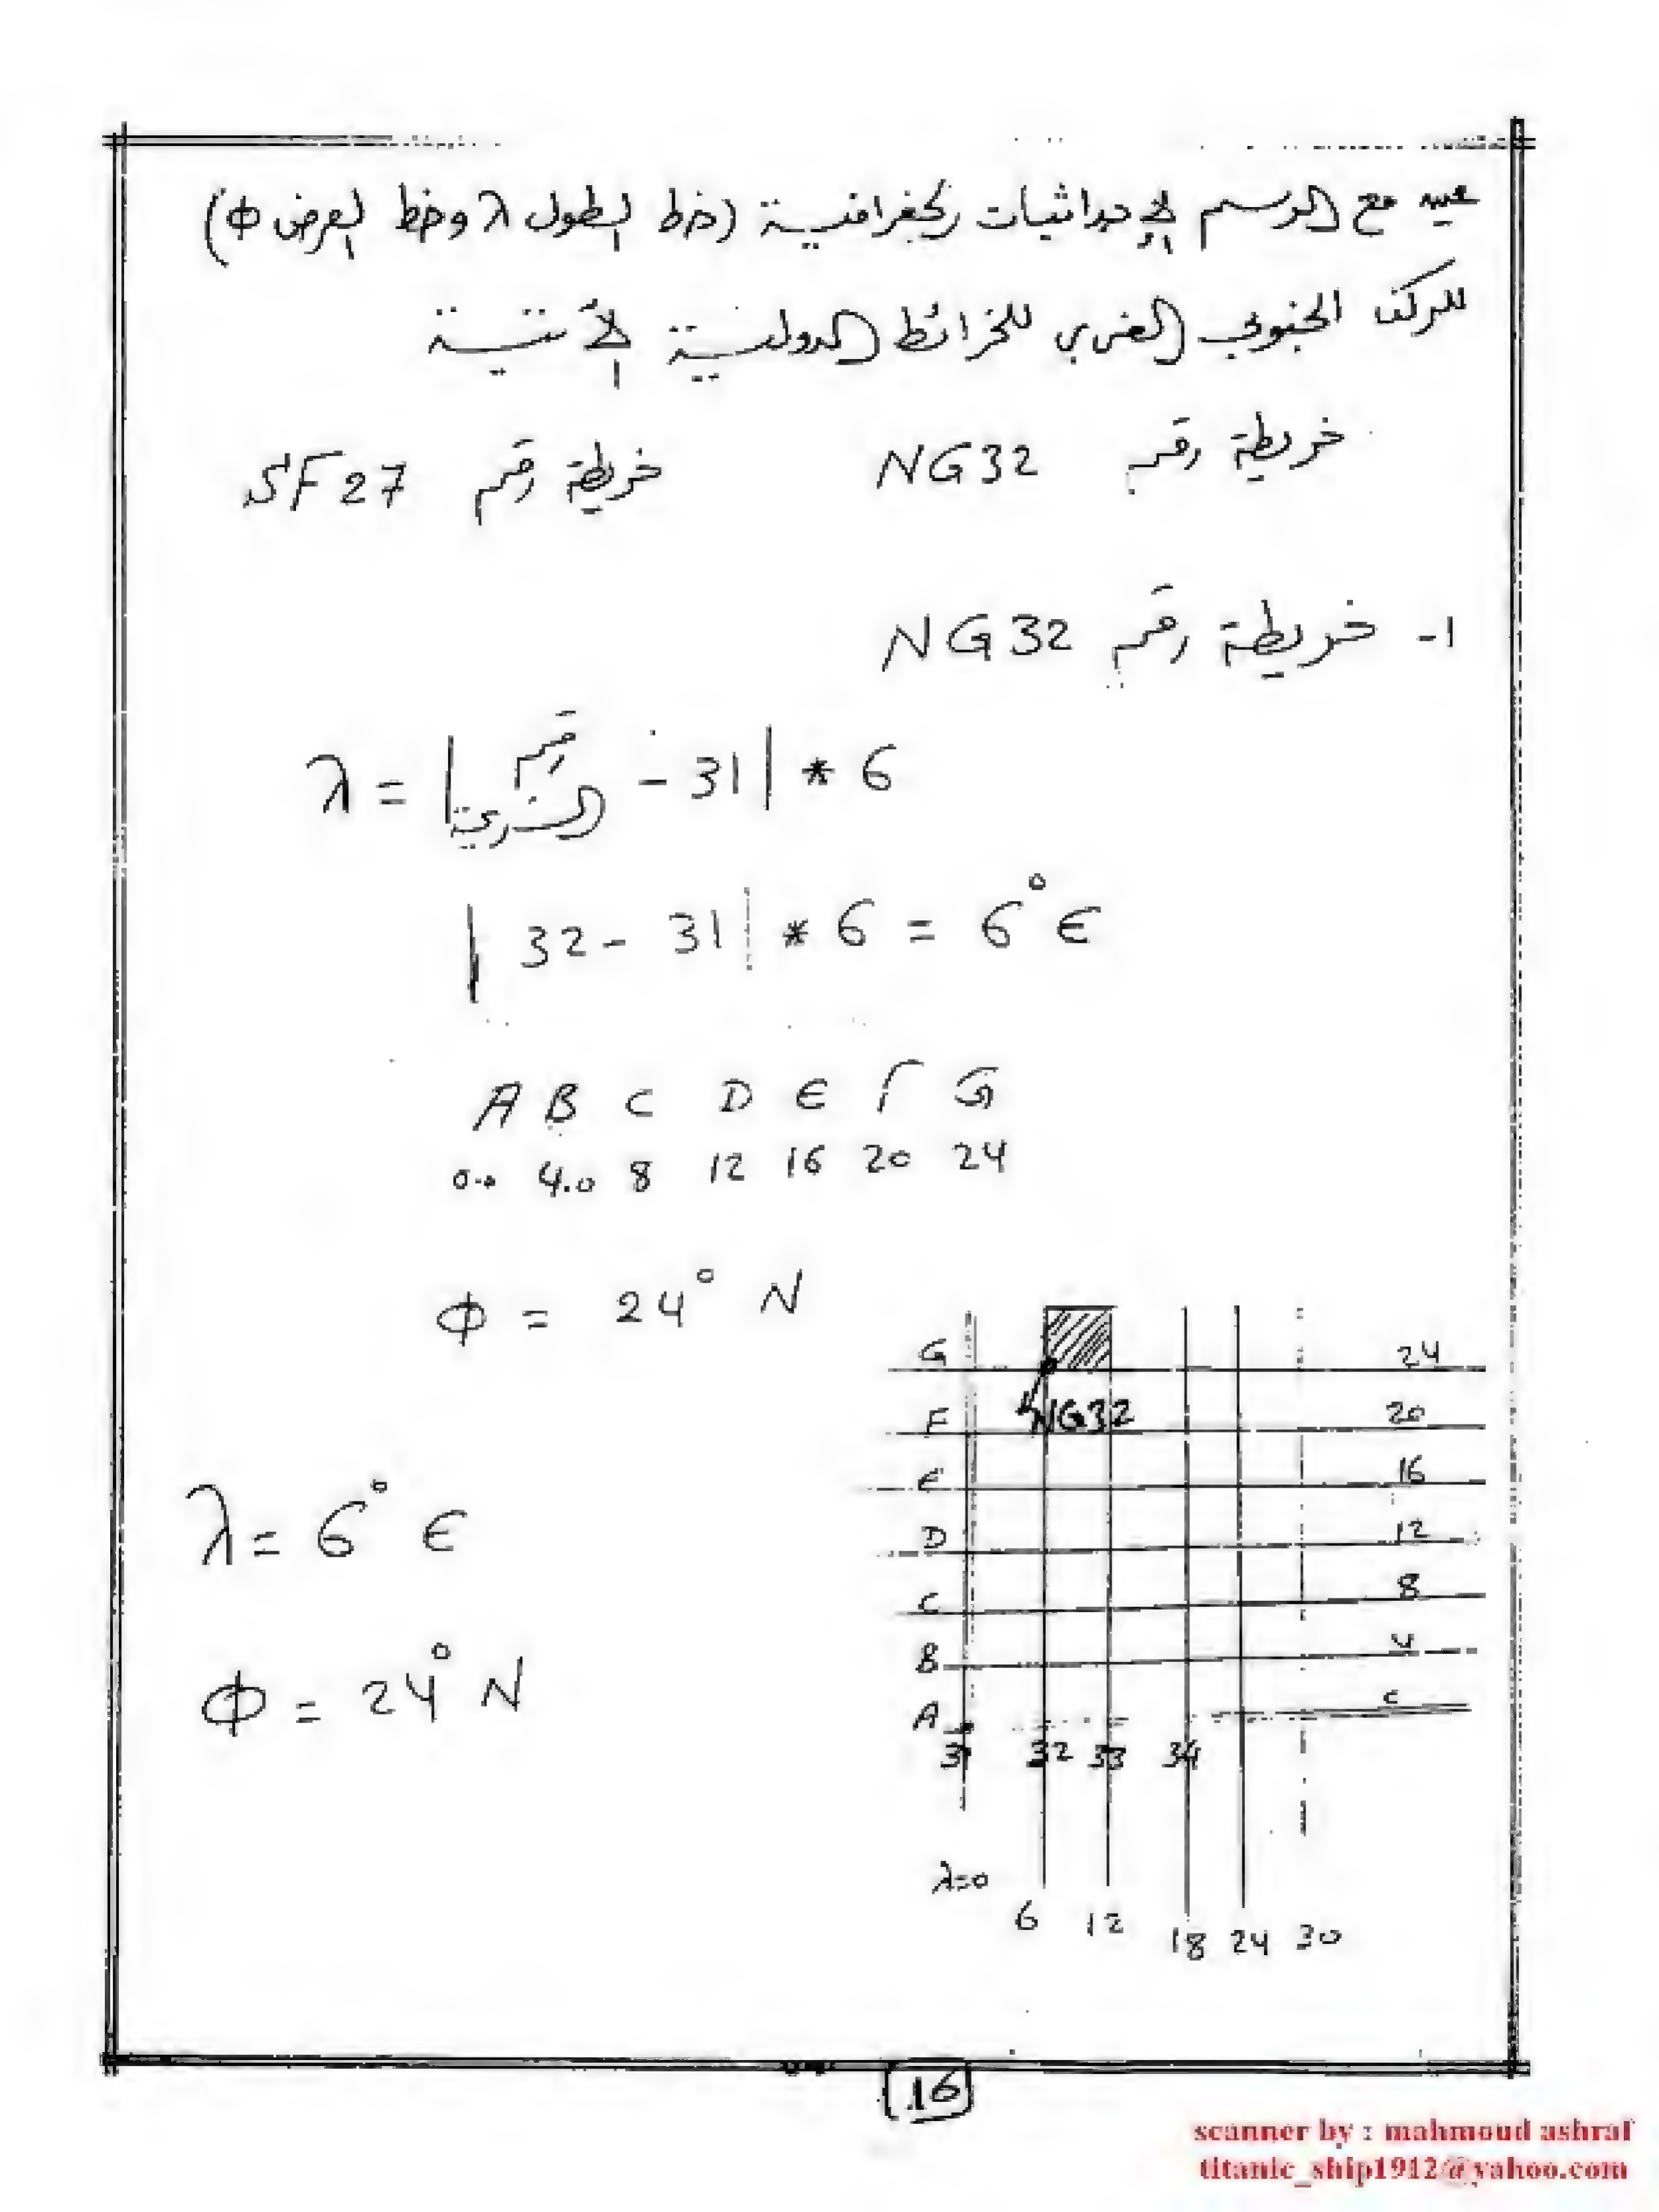 عين مع الرسم الإحداثيات الجغرافية (خط الطول λ وخط العرض Φ)
للركن الجنوبي الغربي للخرائط الدولية الأتية
خريطة رقم NG32 خريطة رقم SF27
١- خريطة رقم NG32
λ = |رقم الشريحة - 31| * 6
|32 - 31| * 6 = 6° E
A B C D E F G
0.0 4.0 8 12 16 20 24
Φ = 24° N
G 24
NG32
F 20
E 16
D 12
C 8
B 4
A
31 32 33 34
λ=0
6 12 18 24 30
λ = 6° E
Φ = 24° N
16
scanner by : mahmoud ashraf
titanic_ship1912@yahoo.com